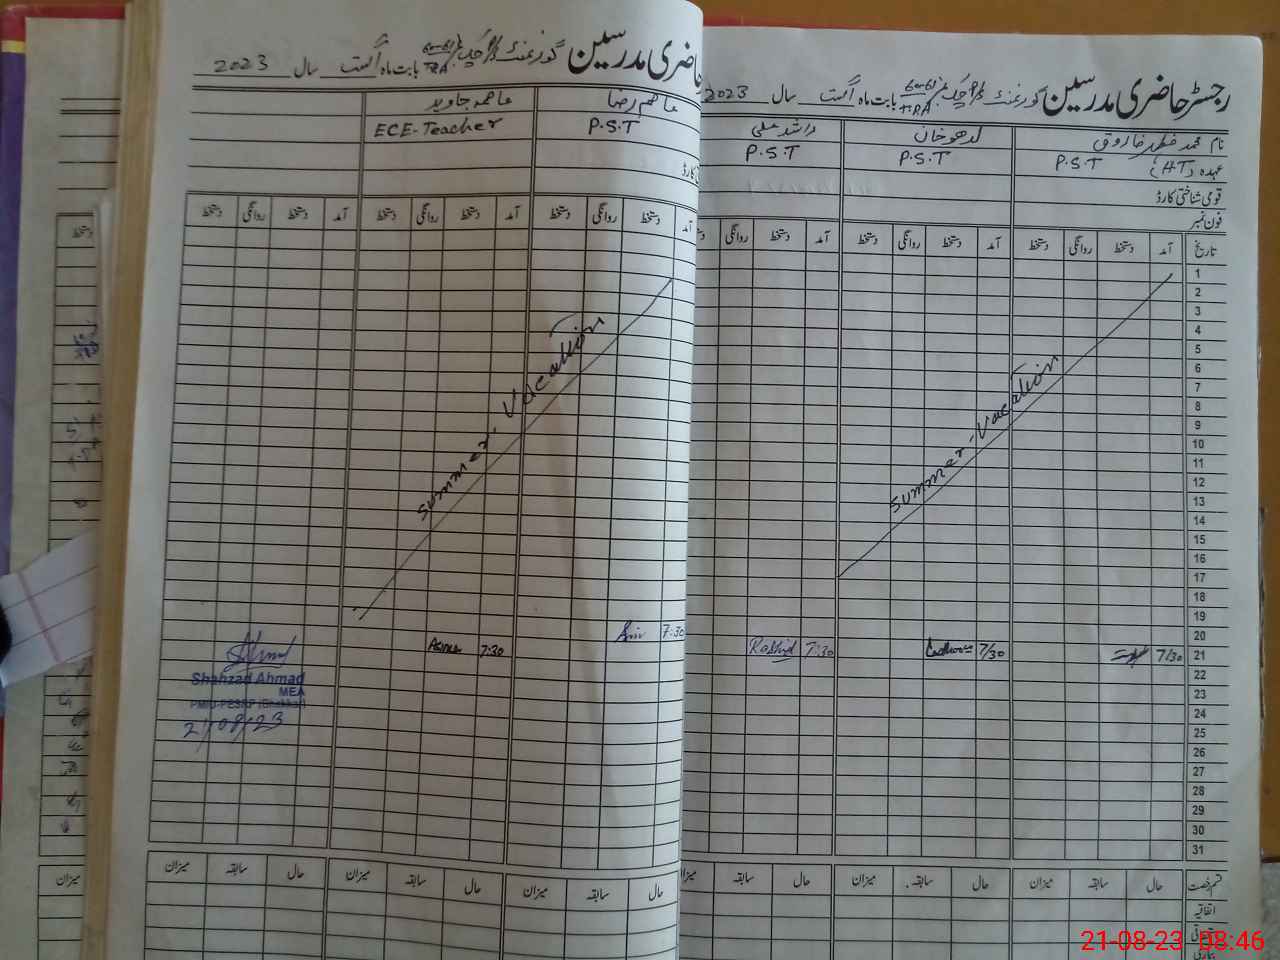 رجسٹر حاضری مدرسین گورنمنٹ بابت ماہ اگست سال 2023
نام محمد فاروق
عہدہ (HT) P.S.T
قومی شناختی کارڈ
فون نمبر
لدھو خان
P.S.T
راشد علی
P.S.T
تاریخ آمد دستخط روانگی دستخط آمد دستخط روانگی دستخط آمد دستخط روانگی
1
2
3
4
5
6
7
8
9
10
11
12
13
14
15
16
17
18
19
20
21 7/30 7/30 Rashid 7:30
22
23
24
25
26
27
28
29
30
31
Summer-Vacation
قسم رخصت حال سابقہ میزان حال سابقہ میزان حال سابقہ
اتفاقیہ
حاضری مدرسین گورنمنٹ بابت ماہ اگست سال 2023
عاصم رضا
P.S.T
عاصمہ جاوید
ECE-Teacher
آمد دستخط روانگی دستخط آمد دستخط روانگی دستخط آمد دستخط روانگی دستخط
Summer-Vacation
7:30
7:30 Asma
Shahzad Ahmad
MEA
21/08/23
حال سابقہ میزان حال سابقہ میزان حال سابقہ میزان
دستخط
میزان
21-08-23 08:46